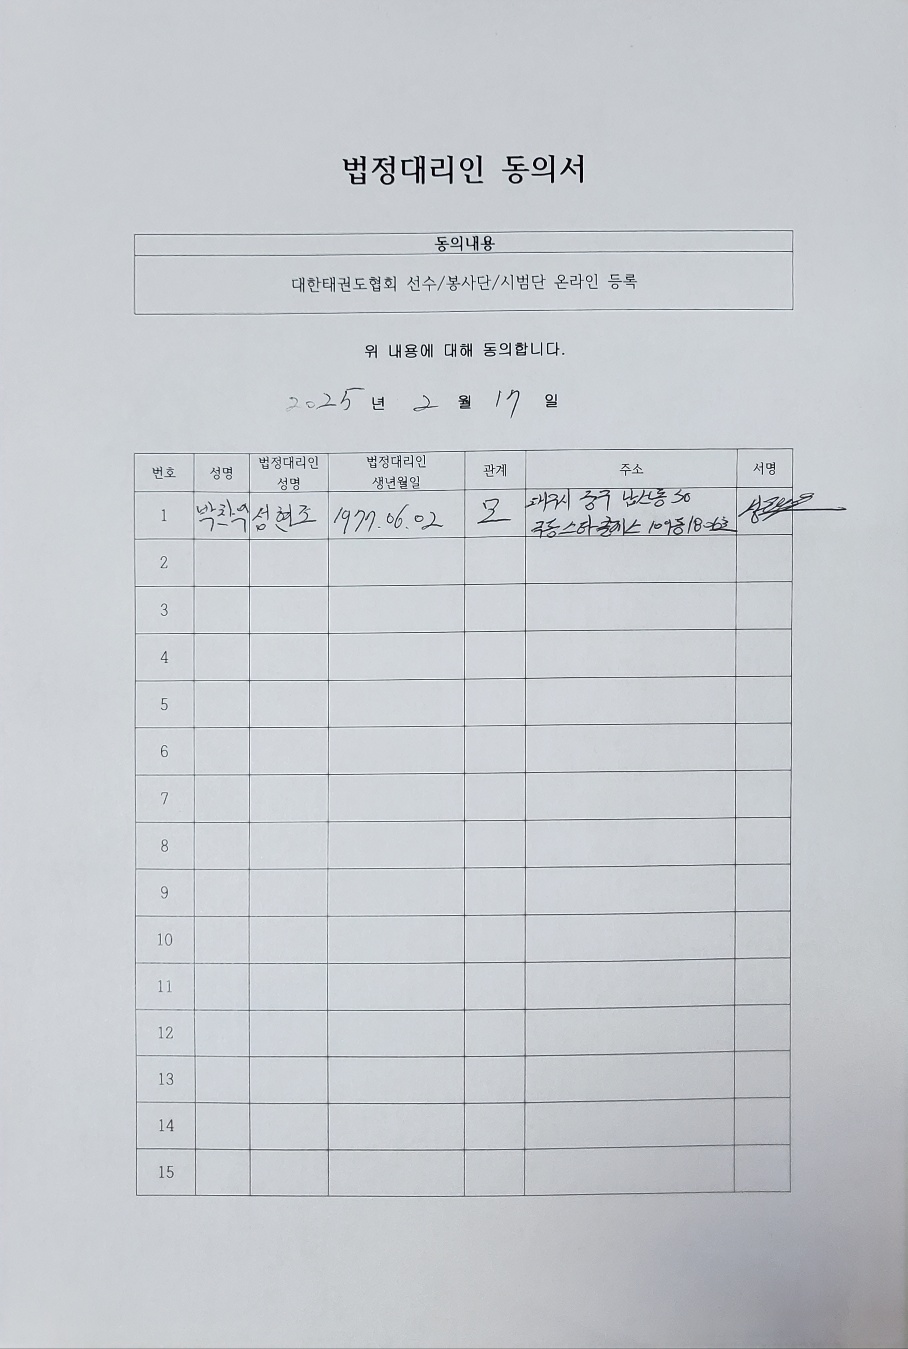 법정대리인 동의서
동의내용
대한태권도협회 선수/봉사단/시범단 온라인 등록
위 내용에 대해 동의합니다.
2025 년 2 월 17 일
번호 성명 법정대리인 성명 법정대리인 생년월일 관계 주소 서명
1 1977.06.02 모 대구시 중구 남산동 50
극동스타클래스 109동
2
3
4
5
6
7
8
9
10
11
12
13
14
15